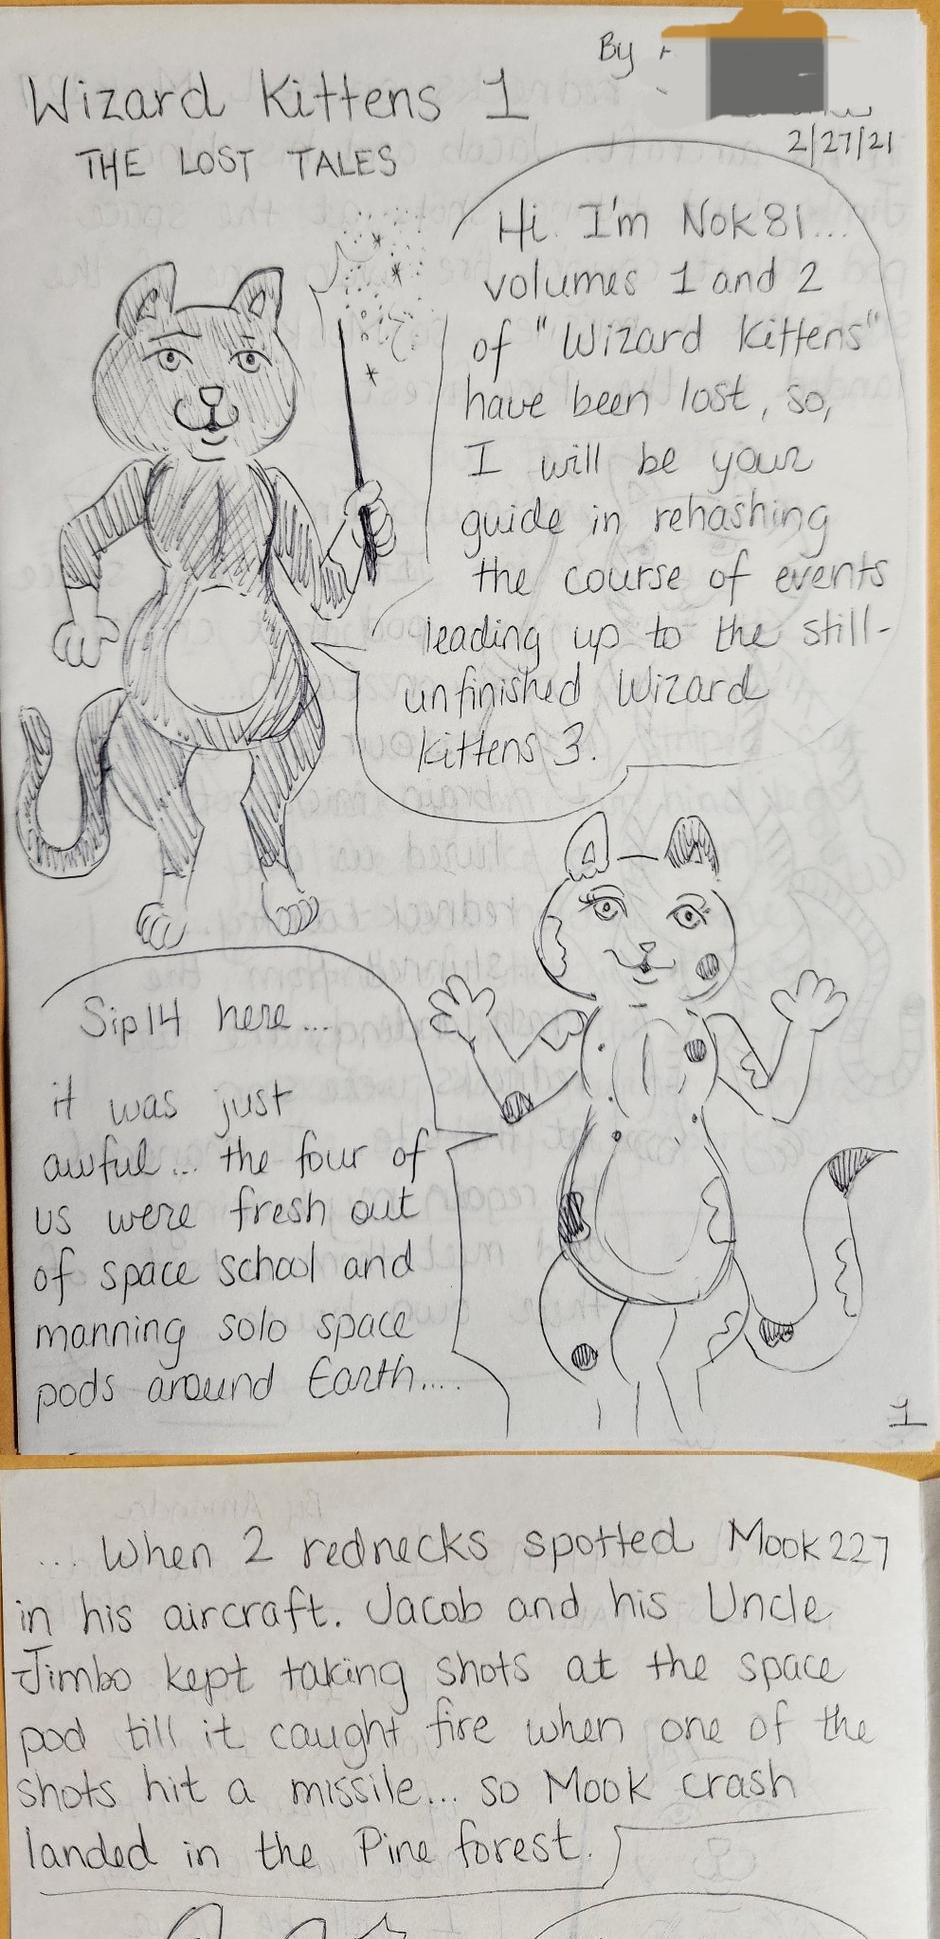 By
Wizard Kittens 1
THE LOST TALES
2/27/21
Hi. I'm Nok81...
volumes 1 and 2
of "Wizard Kittens"
have been lost, so,
I will be your
guide in rehashing
the course of events
leading up to the still-
unfinished Wizard
Kittens 3.
Sip14 here...
it was just
awful... the four of
us were fresh out
of space school and
manning solo space
pods around Earth....
1
... When 2 rednecks spotted Mook227
in his aircraft. Jacob and his Uncle
Jimbo kept taking shots at the space
pod till it caught fire when one of the
shots hit a missile... so Mook crash
landed in the Pine forest.